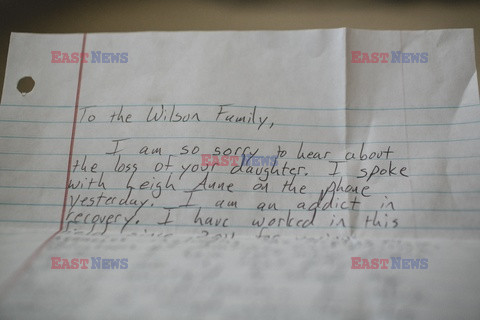 EASTNEWS EASTNEWS
To the Wilson Family,
I am so sorry to hear about
the loss of your daughter. I spoke
EASTNEWS
with Leigh Anne on the phone
yesterday. I am an addict in
recovery. I have worked in this
EASTNEWS EASTNEWS